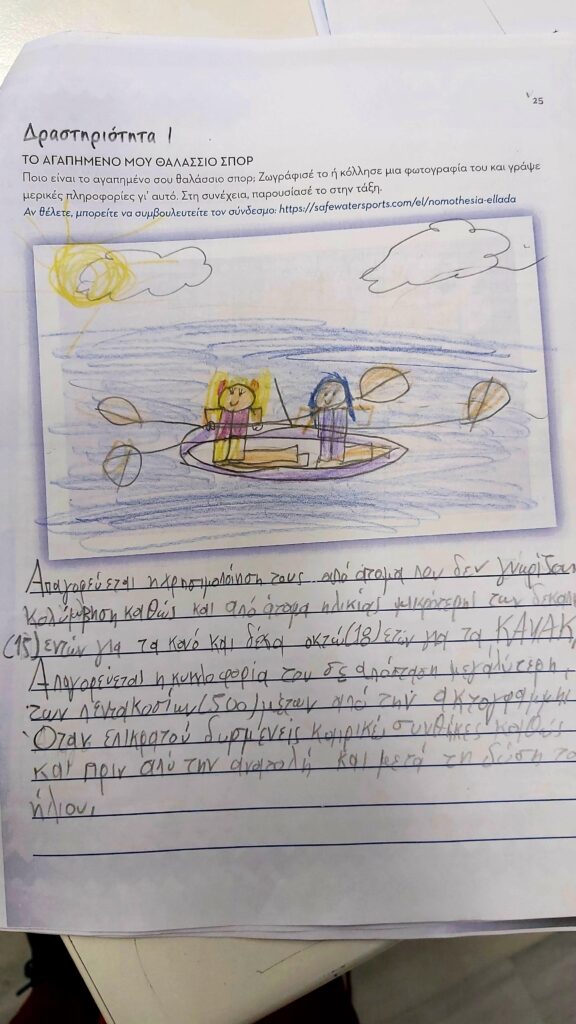 25
Δραστηριότητα 1
ΤΟ ΑΓΑΠΗΜΕΝΟ ΜΟΥ ΘΑΛΑΣΣΙΟ ΣΠΟΡ
Ποιο είναι το αγαπημένο σου θαλάσσιο σπορ; Ζωγράφισέ το ή κόλλησε μια φωτογραφία του και γράψε
μερικές πληροφορίες γι' αυτό. Στη συνέχεια, παρουσίασέ το στην τάξη.
Αν θέλετε, μπορείτε να συμβουλευτείτε τον σύνδεσμο: https://safewatersports.com/el/nomothesia-ellada
Απαγορεύεται η χρησιμοποίηση τους από άτομα που δεν γνωρίζουν
κολύμβηση καθώς και από άτομα ηλικίας μικρότερης των δεκαπ
(15) ετών για τα κανό και δέκα οκτώ (18) ετών για τα ΚΑΝΑΚ,
Απαγορεύεται η κυκλοφορία του σε απόσταση μεγαλύτερη
των πεντακοσίων (500) μέτων από την ακτογραμμή
Όταν επικρατού δυσμενείς καιρικέ συνθήκες καθώς
και πριν από την ανατολή και μετά τη δύση το
ήλιου,